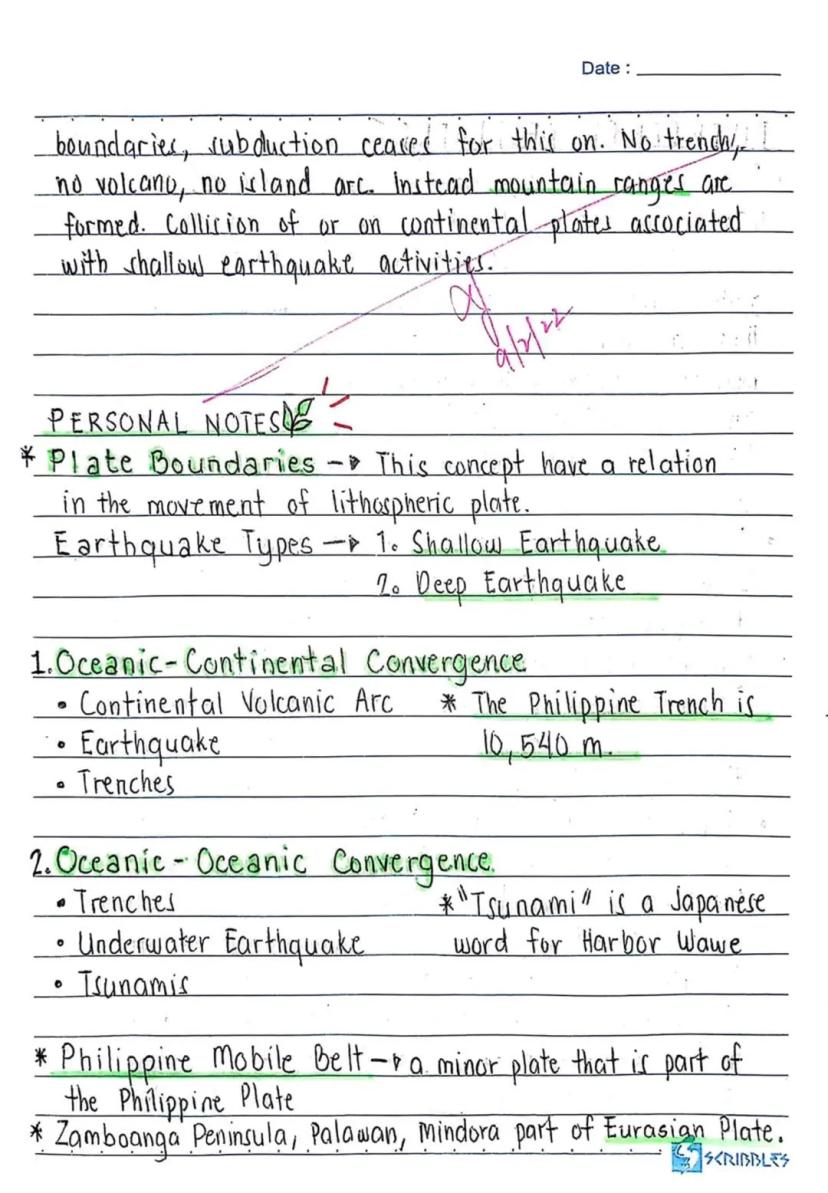 Date :
boundaries, subduction ceases for this on. No trench,
no volcano, no island arc. Instead mountain ranges are
formed. Collision of or on continental plates associated
with shallow earthquake activities.
9/2/22
PERSONAL NOTES
* Plate Boundaries → This concept have a relation
in the movement of lithospheric plate.
Earthquake Types → 1. Shallow Earthquake
2. Deep Earthquake
1. Oceanic-Continental Convergence
• Continental Volcanic Arc * The Philippine Trench is
• Earthquake 10,540 m.
• Trenches
2. Oceanic - Oceanic Convergence.
• Trenches *"Tsunami" is a Japanese
• Underwater Earthquake word for Harbor Wawe
• Tsunamis
* Philippine Mobile Belt → a minor plate that is part of
the Philippine Plate
* Zamboanga Peninsula, Palawan, Mindora part of Eurasian Plate.
SCRIBBLES